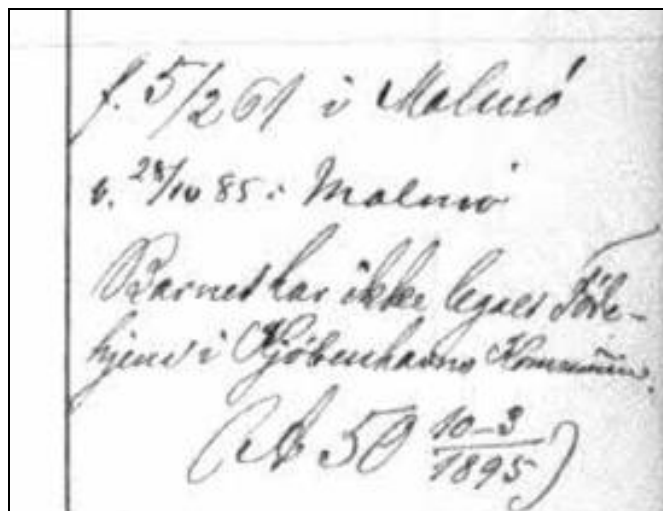 f. 5/2 61 i Malmö
v. 28/10 85 i Malmö
Barnet har ikke legalt Føde-
hjem i Kjöbenhavns Kommune.
(A 50 10-3/1895)